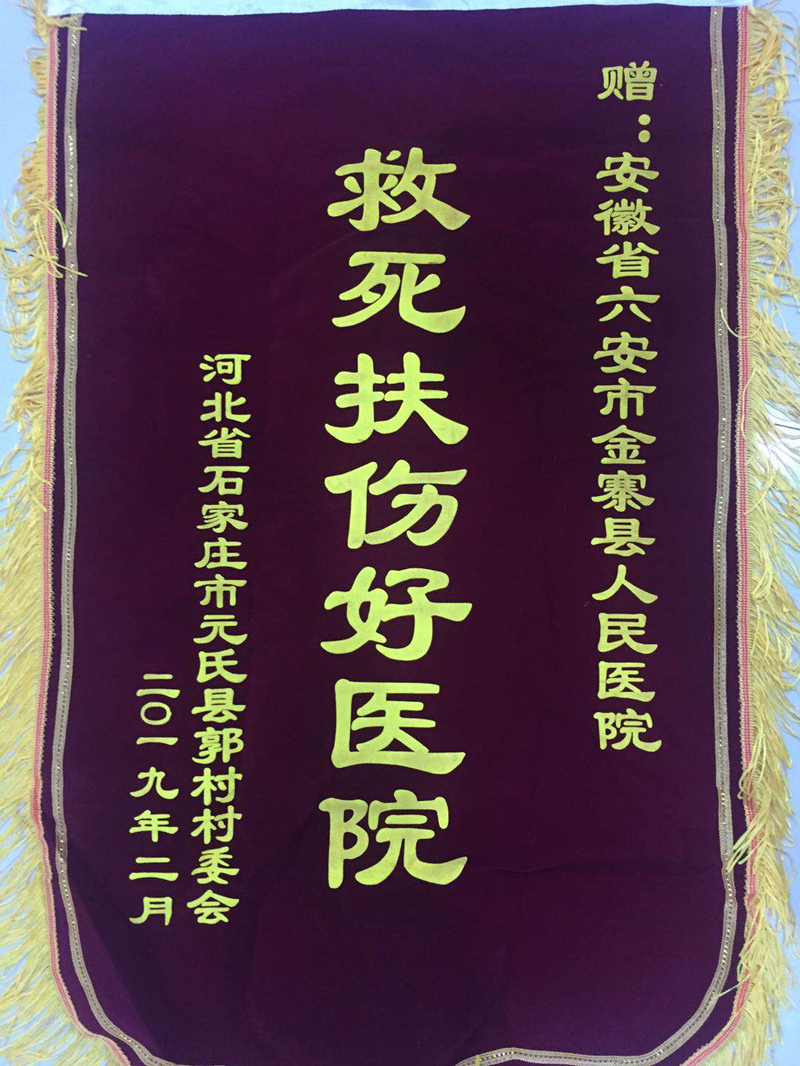 赠：安徽省六安市金寨县人民医院
救死扶伤好医院
河北省石家庄市元氏县郭村村委会
二〇一九年二月